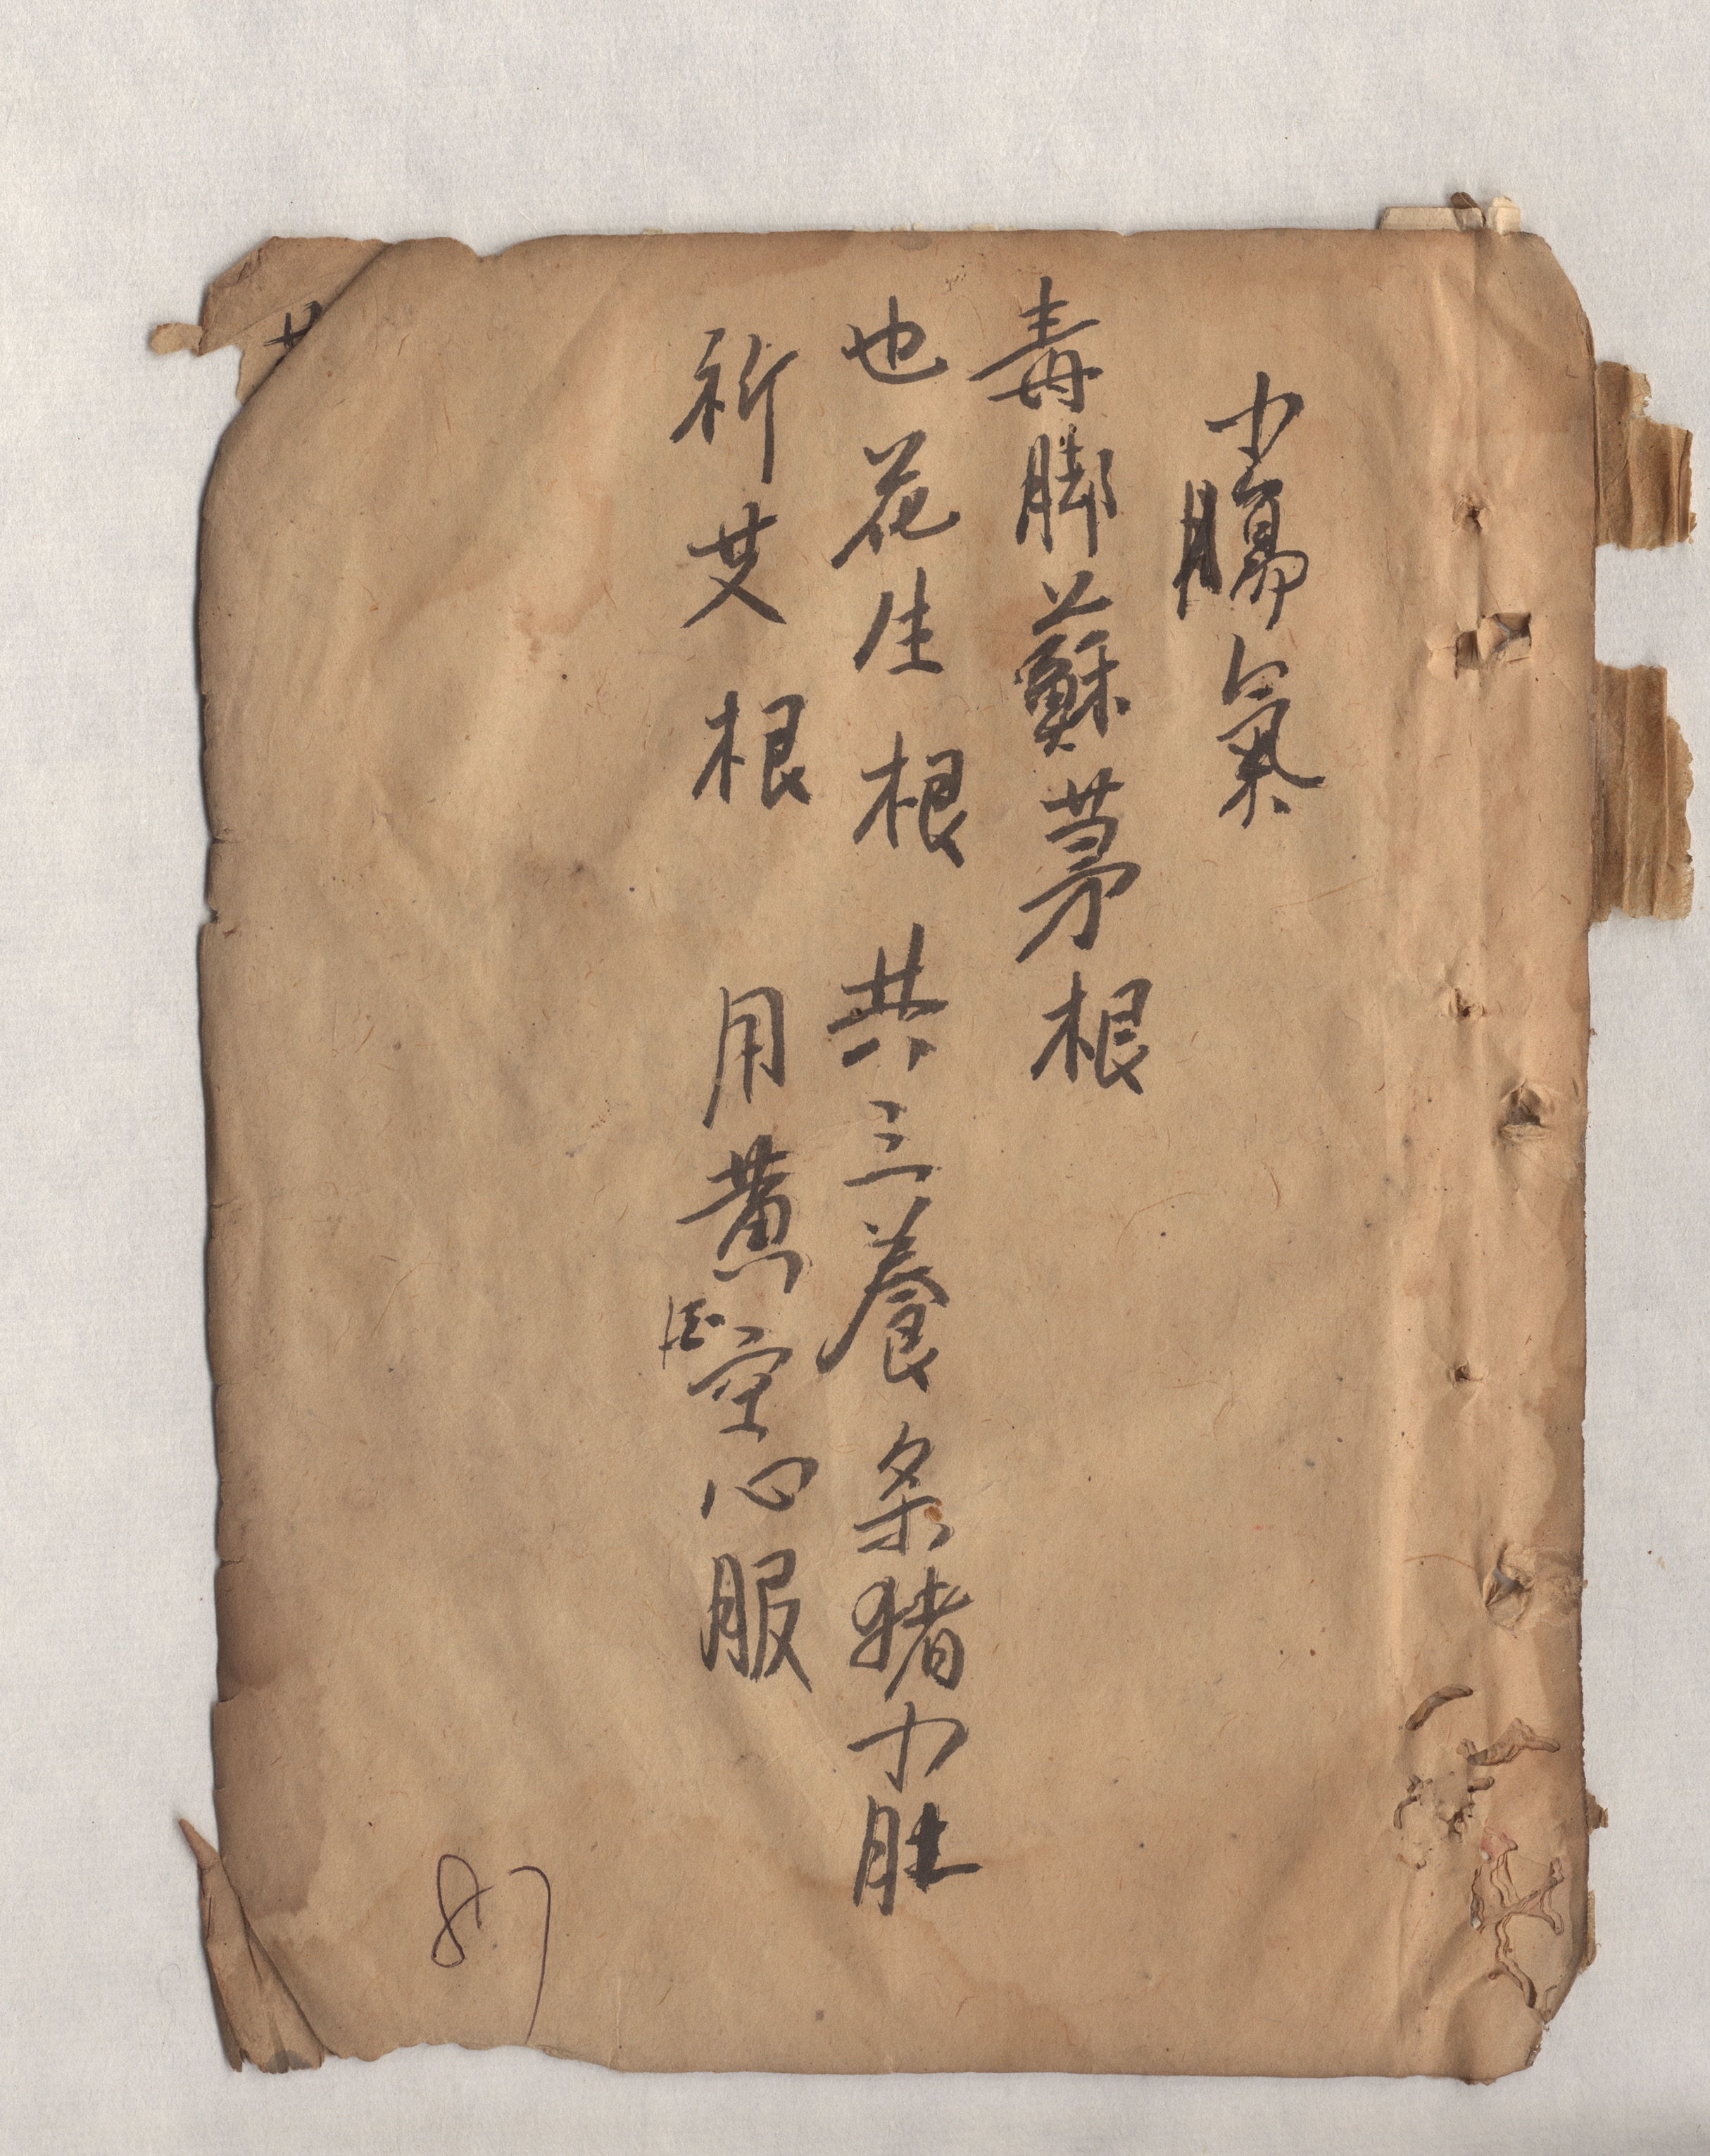 小腸氣
毒脚蘇茅根
也花生根 共三養条猪小肚
祈艾根 用黃酒空心服
87